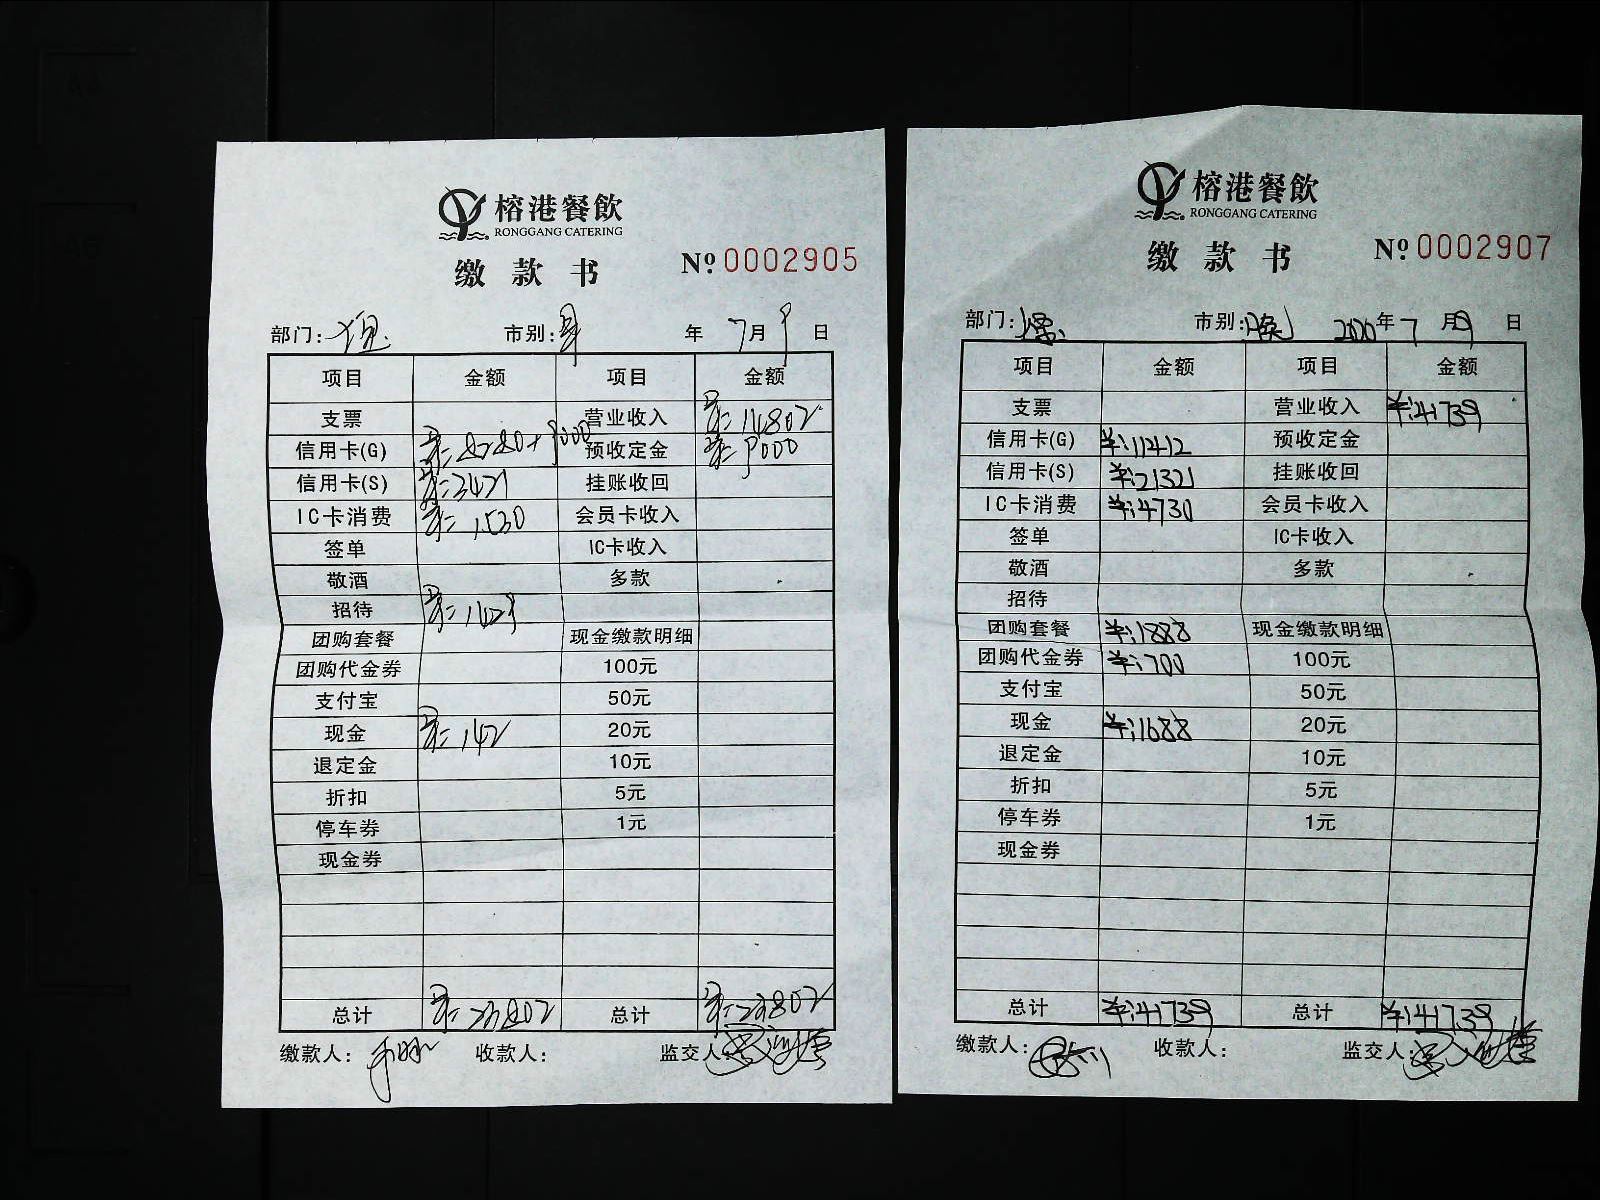 榕港餐飲
RONGGANG CATERING
缴款书
Nº 0002905
部门: 市别: 年 7月9日
项目 金额 项目 金额
支票 营业收入 14802
信用卡(G) 8280+9000 预收定金 9000
信用卡(S) 3421 挂账收回
IC卡消费 1530 会员卡收入
签单 IC卡收入
敬酒 多款
招待 1429
团购套餐 现金缴款明细
团购代金券 100元
支付宝 50元
现金 142 20元
退定金 10元
折扣 5元
停车券 1元
现金券
总计 23802 总计 23802
缴款人: 收款人: 监交人:
榕港餐飲
RONGGANG CATERING
缴款书
Nº 0002907
部门: 市别:晚 2020年7月9日
项目 金额 项目 金额
支票 营业收入 ¥:41739
信用卡(G) ¥:11412 预收定金
信用卡(S) ¥:21321 挂账收回
IC卡消费 ¥:4730 会员卡收入
签单 IC卡收入
敬酒 多款
招待
团购套餐 ¥:1888 现金缴款明细
团购代金券 ¥:700 100元
支付宝 50元
现金 ¥:1688 20元
退定金 10元
折扣 5元
停车券 1元
现金券
总计 ¥:41739 总计 ¥:41739
缴款人: 收款人: 监交人: